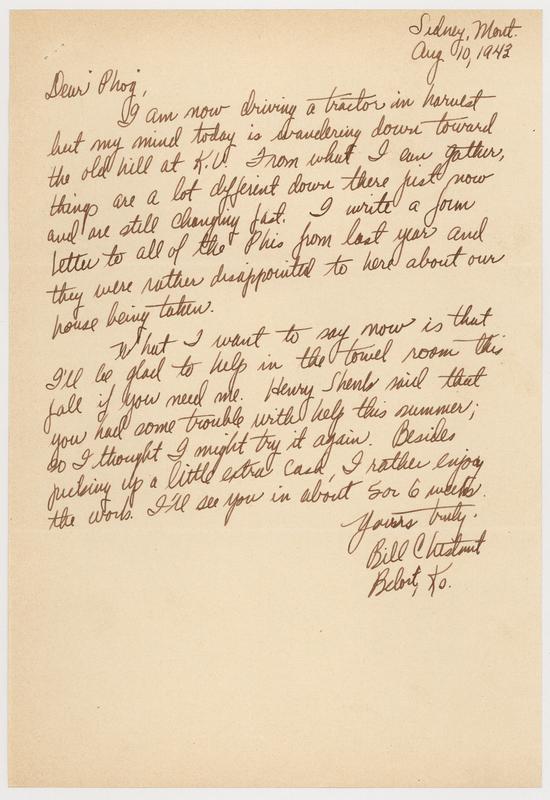 Sidney, Mont.
Aug 10, 1943
Dear Phog,
I am now driving a tractor in harvest
but my mind today is wandering down toward
the old hill at K.U. From what I can gather,
things are a lot different down there just now
and are still changing fast. I write a form
letter to all of the Phis from last year and
they were rather disappointed to here about our
house being taken.
What I want to say now is that
I'll be glad to help in the towel room this
fall if you need me. Henry Shenk said that
you had some trouble with help this summer;
so I thought I might try it again. Besides
picking up a little extra cash, I rather enjoy
the work. I'll see you in about 5 or 6 weeks.
Yours truly.
Bill Chestnut
Beloit, Ks.